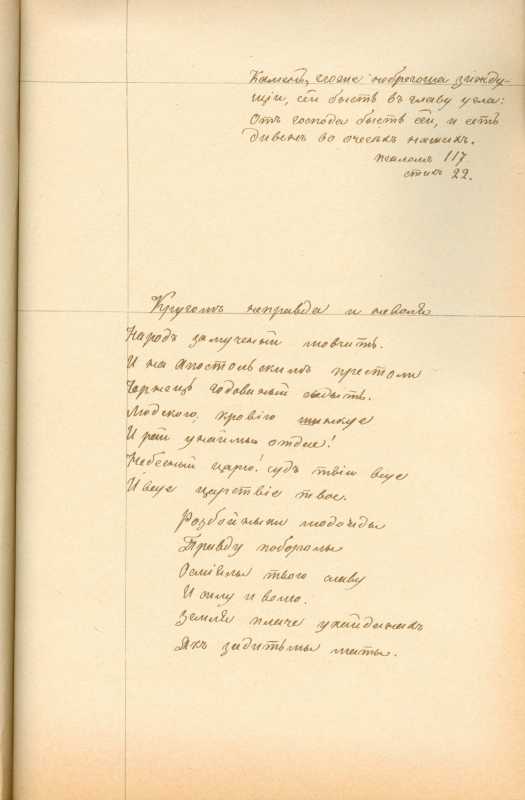 Камень, егоже небрегоша зижду-
щіи, сей бысть въ главу угла:
Отъ господа бысть сей, и есть
дивенъ во очесѣхъ нашихъ.
псаломъ 117
стихъ 22.
Кругомъ неправда и неволя
Народъ замученый мовчить.
И на Апостольскимъ престоли
Чернець годованый сыдыть.
Людскою кровію шинкує
И рай у наймы отдає!
Небесный царю! судъ твій всує
И всує царствіє твоє.
Розбойныки людоѣды
Правду побороли
Осміяли твою славу
И силу и волю.
Земля плаче у кайданахъ
Якъ за дитьмы маты.